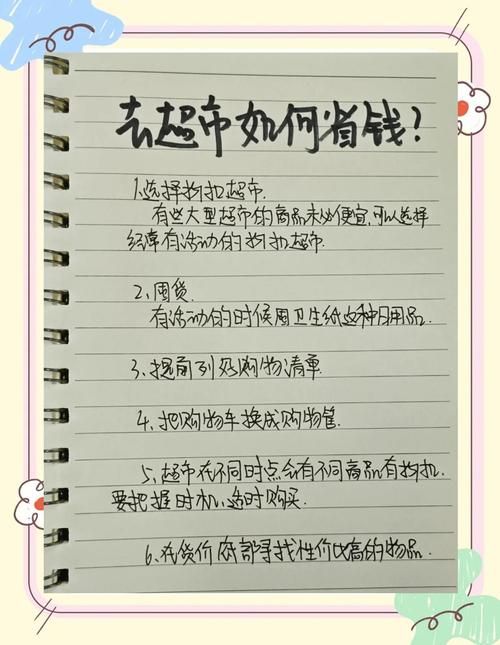 去超市如何省钱?
1.选择折扣超市.
有些大型超市的商品未必便宜,可以选择
经常有活动的折扣超市.
2、囤货.
有活动的时候囤卫生纸这种日用品.
3、提前列好购物清单.
4、把购物车换成购物筐.
5、超市在不同时点会有不同商品有折扣.
要把握时机、适时购买.
6、在货价底部寻找性价比高的物品.